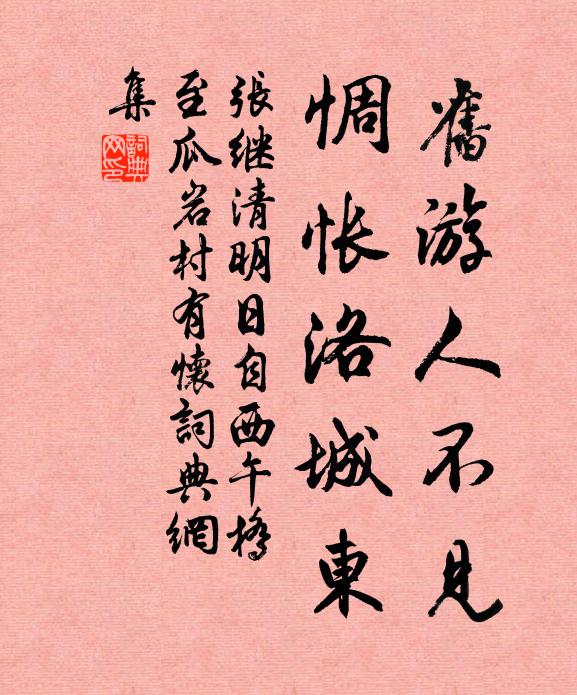 舊游人不見
惆怅洛城東
張继清明日自西午橋
至瓜岩村有懷詞典網
集
詞典
网印